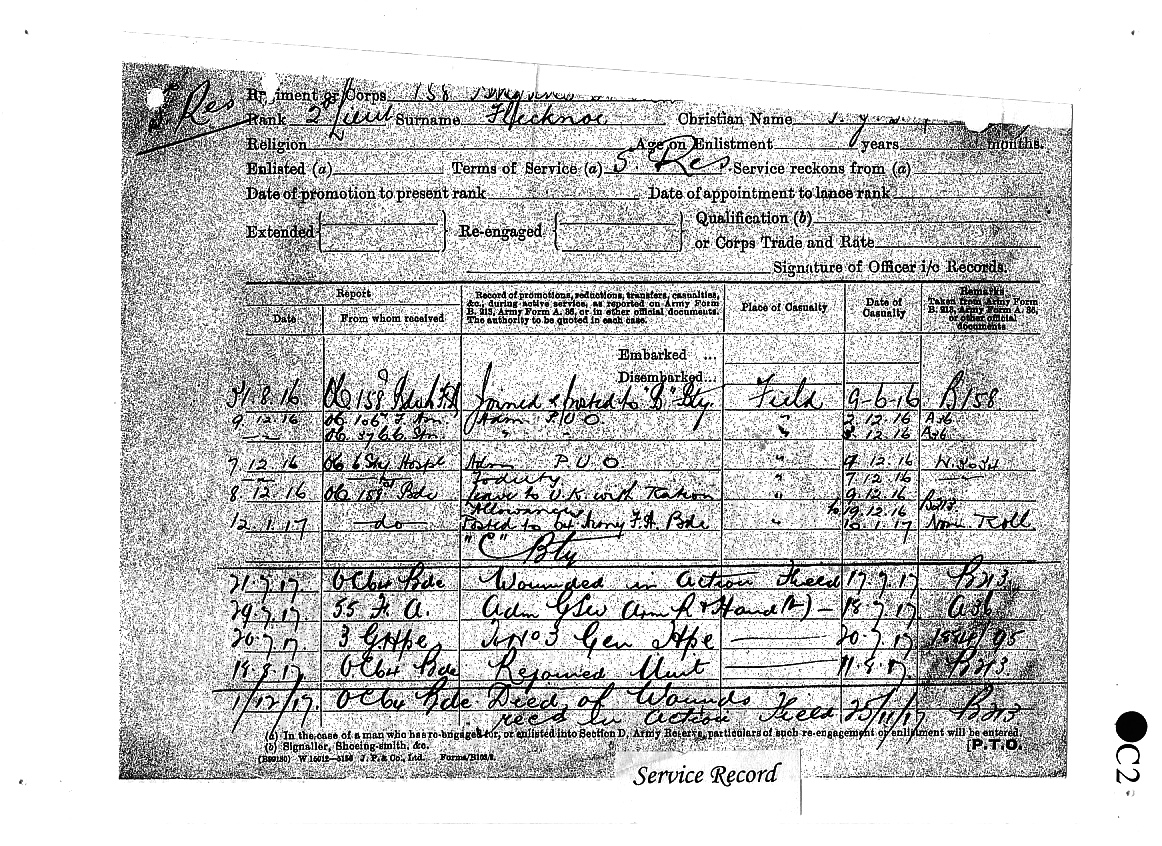 S Res
Regiment or Corps 158
Rank 2/Lieut Surname Flecknoe Christian Name
Religion Age on Enlistment years months.
Enlisted (a) Terms of Service (a) S. Res Service reckons from (a)
Date of promotion to present rank Date of appointment to lance rank
Extended Re-engaged Qualification (b)
or Corps Trade and Rate
Signature of Officer i/c Records.
Report Record of promotions, reductions, transfers, casualties, &c., during active service, as reported on Army Form B. 213, Army Form A. 36, or in other official documents. The authority to be quoted in each case. Place of Casualty Date of Casualty Remarks Taken from Army Form B. 213, Army Form A. 36, or other official documents
Date From whom received
Embarked ...
Disembarked...
31.8.16 OC 158 Joined & posted to "B" Bty Field 9-6-16 B158
9.12.16 OC 106 F. Am. Adm. P.U.O. " 2.12.16 A36
OC " " " .12.16 A36
7.12.16 OC 6 Sty Hospl Adm P.U.O. " .12.16
To duty 7.12.16
8.12.16 OC 158 Bde Leave to U.K. with Ration " 9.12.16 B213
Allowances to 19.12.16
12.1.17 do Posted to 64 Army F.A. Bde " 10.1.17 Nom. Roll
"C" Bty
21.7.17 OC 64 Bde Wounded in Action Field 17.7.17 B213
29.7.17 55 F.A. Adm GSW Arm R & Hand 18.7.17 A36
20.7.17 3 G. Hpe No 3 Gen Hpe 20.7.17
18.8.17 OC 64 Bde Rejoined Unit 11.8.17 B213
1/12/17. OC 64 Bde Died of Wounds
recd in Action Field 25/11/17 B213
(a) In the case of a man who has re-engaged for, or enlisted into Section D, Army Reserve, particulars of such re-engagement or enlistment will be entered.
(b) Signaller, Shoeing-smith, &c.
[P.T.O.
J. P. & Co., Ltd.
Service Record
C2